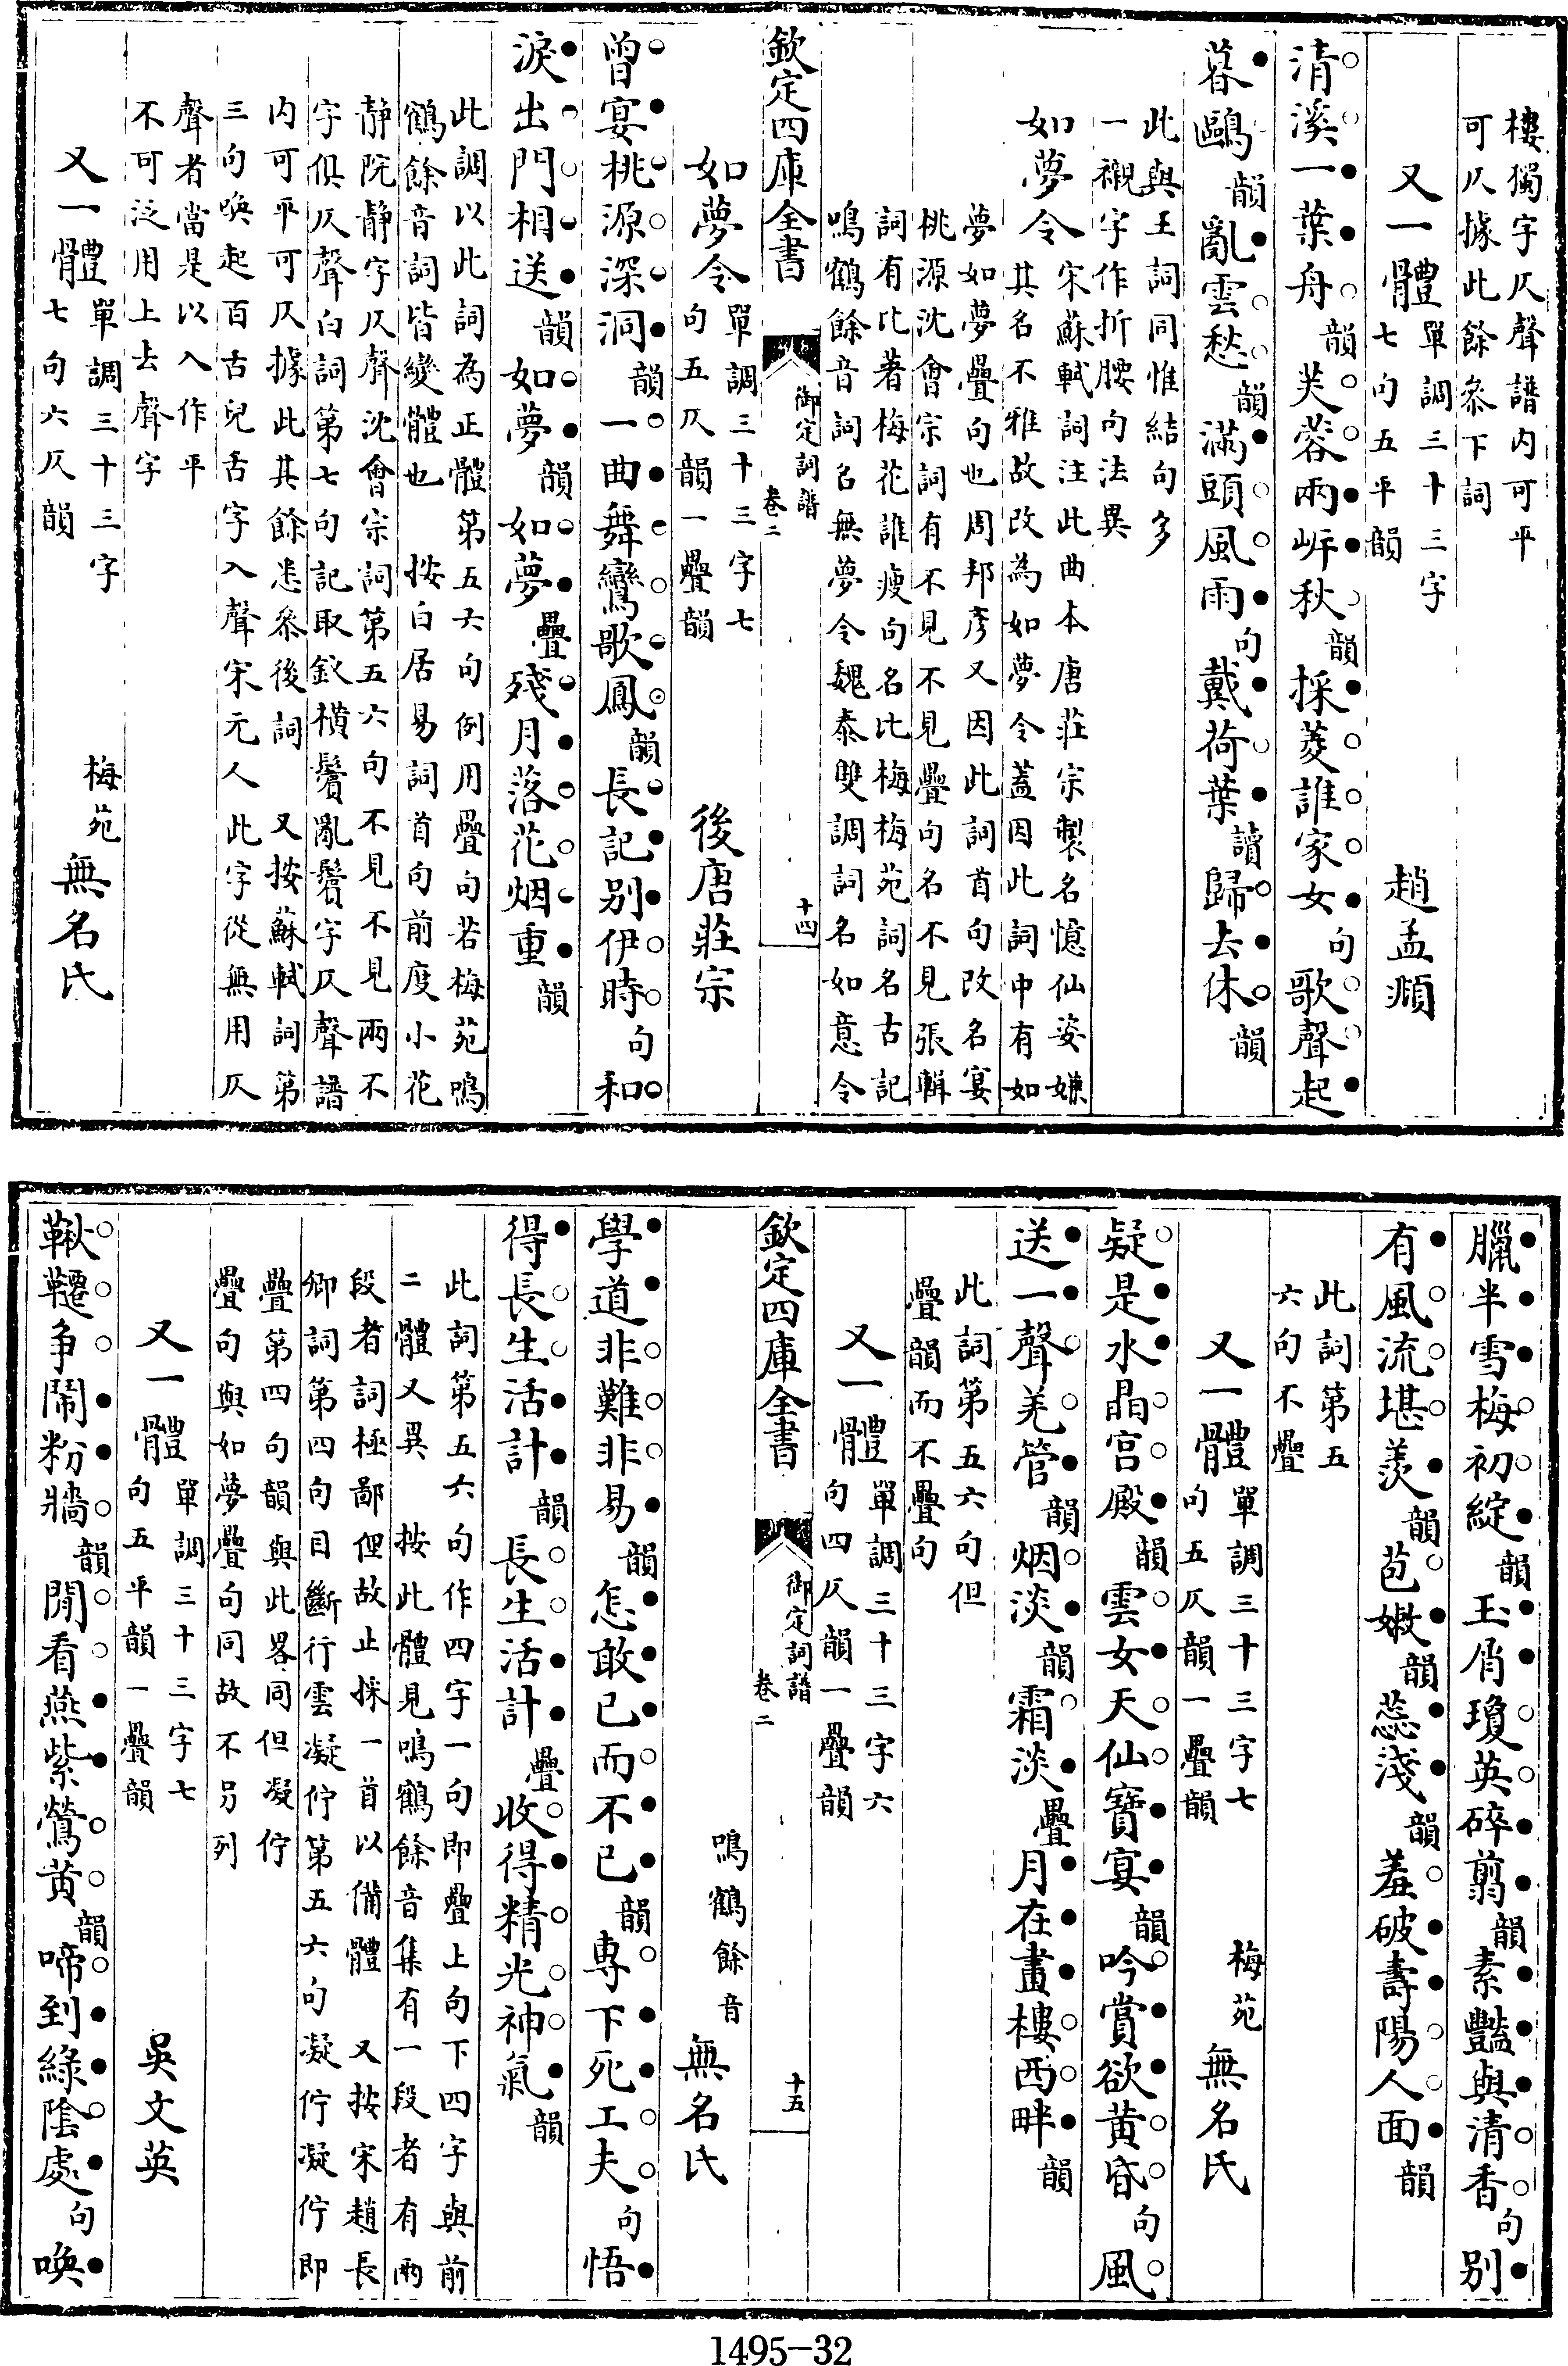 樓獨字仄聲譜內可平
可仄據此餘叅下詞
又一體單調三十三字
七句五平韻
趙孟頫
清溪一葉舟韻芙蓉兩岍秋韻採菱誰家女句歌聲起
暮鷗韻亂雲愁韻滿頭風雨句戴荷葉讀歸去休韻
此與王詞同惟結句多
一襯字作折腰句法異
如夢令宋蘇軾詞注此曲本唐莊宗製名憶仙姿嫌
其名不雅故改為如夢令蓋因此詞中有如
夢如夢疊句也周邦彦又因此詞首句改名宴
桃源沈會宗詞有不見不見疊句名不見張輯
詞有比著梅花誰瘦句名比梅梅苑詞名古記
鳴鶴餘音詞名無夢令魏泰雙調詞名如意令
欽定四庫全書
御定詞譜
卷二
十四
如夢令單調三十三字七
句五仄韻一疊韻
後唐莊宗
曾宴桃源深洞韻一曲舞鸞歌鳳韻長記别伊時句和
淚出門相送韻如夢韻如夢疊殘月落花烟重韻
此調以此詞為正體第五六句例用疊句若梅苑鳴
鶴餘音詞皆變體也 按白居易詞首句前度小花
静院静字仄聲沈會宗詞第五六句不見不見兩不
字俱仄聲白詞第七句記取釵横鬢亂鬢字仄聲譜
内可平可仄據此其餘悉叅後詞 又按蘇軾詞第
三句喚起百舌兒舌字入聲宋元人此字從無用仄
聲者當是以入作平
不可泛用上去聲字
又一體單調三十三字
七句六仄韻
梅苑無名氏
臘半雪梅初綻韻玉屑瓊英碎翦韻素豔與清香句别
有風流堪羨韻苞嫩韻蕊淺韻羞破壽陽人面韻
此詞第五
六句不疊
又一體單調三十三字七
句五仄韻一疊韻
梅苑無名氏
疑是水晶宫殿韻雲女天仙寶宴韻吟賞欲黄昏句風
送一聲羌管韻烟淡韻霜淡疊月在畫樓西畔韻
此詞第五六句但
疊韻而不疊句
又一體單調三十三字六
句四仄韻一疊韻
欽定四庫全書
御定詞譜
卷二
十五
鳴鶴餘音無名氏
學道非難非易韻怎敢已而不已韻專下死工夫句悟
得長生活計韻長生活計疊收得精光神氣韻
此詞第五六句作四字一句即疊上句下四字與前
二體又異 按此體見鳴鶴餘音集有一段者有兩
段者詞極鄙俚故止採一首以備體 又按宋趙長
卿詞第四句目斷行雲凝佇第五六句凝佇凝佇即
疊第四句韻與此畧同但凝佇
疊句與如夢疊句同故不另列
又一體單調三十三字七
句五平韻一疊韻
吳文英
鞦韆争鬧粉牆韻閒看燕紫鶯黄韻啼到綠陰處句喚
1495-32